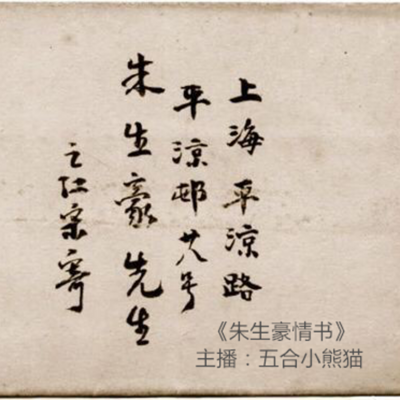 上海平凉路
平凉邨廿八号
朱生豪先生
之江宋寄
《朱生豪情书》
主播：五合小熊猫